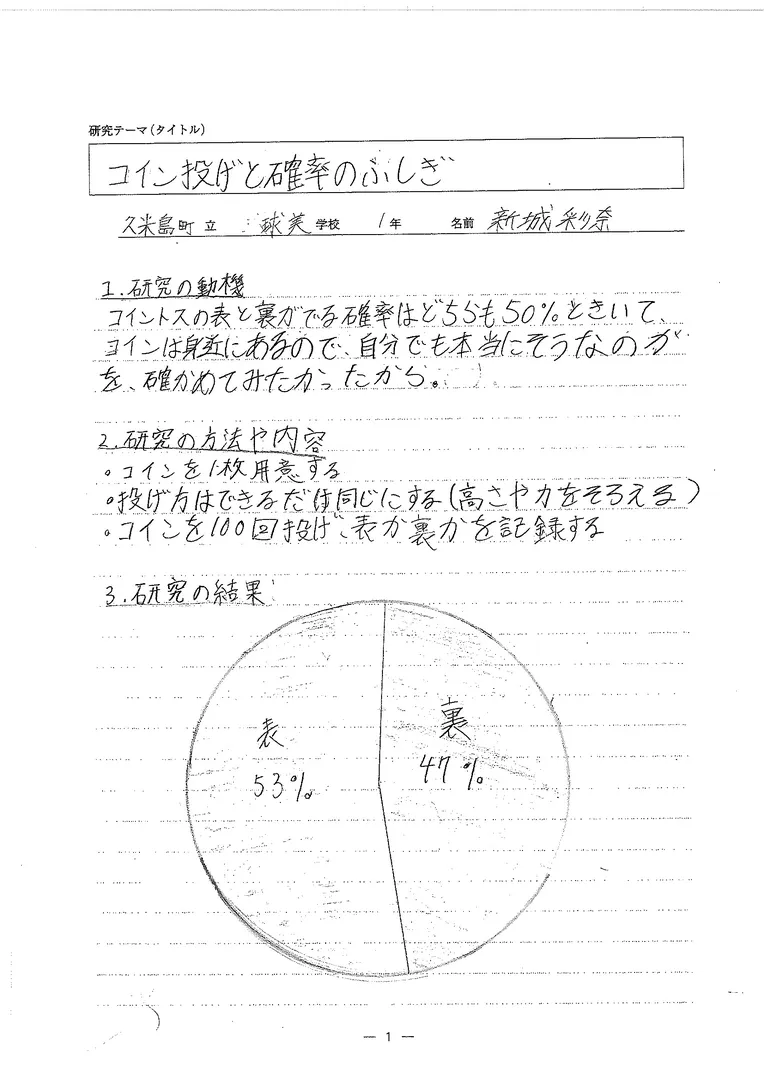 研究テーマ(タイトル)
コイン投げと確率のふしぎ
久米島町 立 球美 学校 1年 名前 新城 彩奈
1.研究の動機
コイントスの表と裏がでる確率はどちらも50%ときいて、
コインは身近にあるので、自分でも本当にそうなのか
を、確かめてみたかったから。
2.研究の方法や内容
◦コインを1枚用意する
◦投げ方はできるだけ同じにする(高さや力をそろえる)
◦コインを100回投げ、表か裏かを記録する
3.研究の結果
表
53%
裏
47%
— 1 —